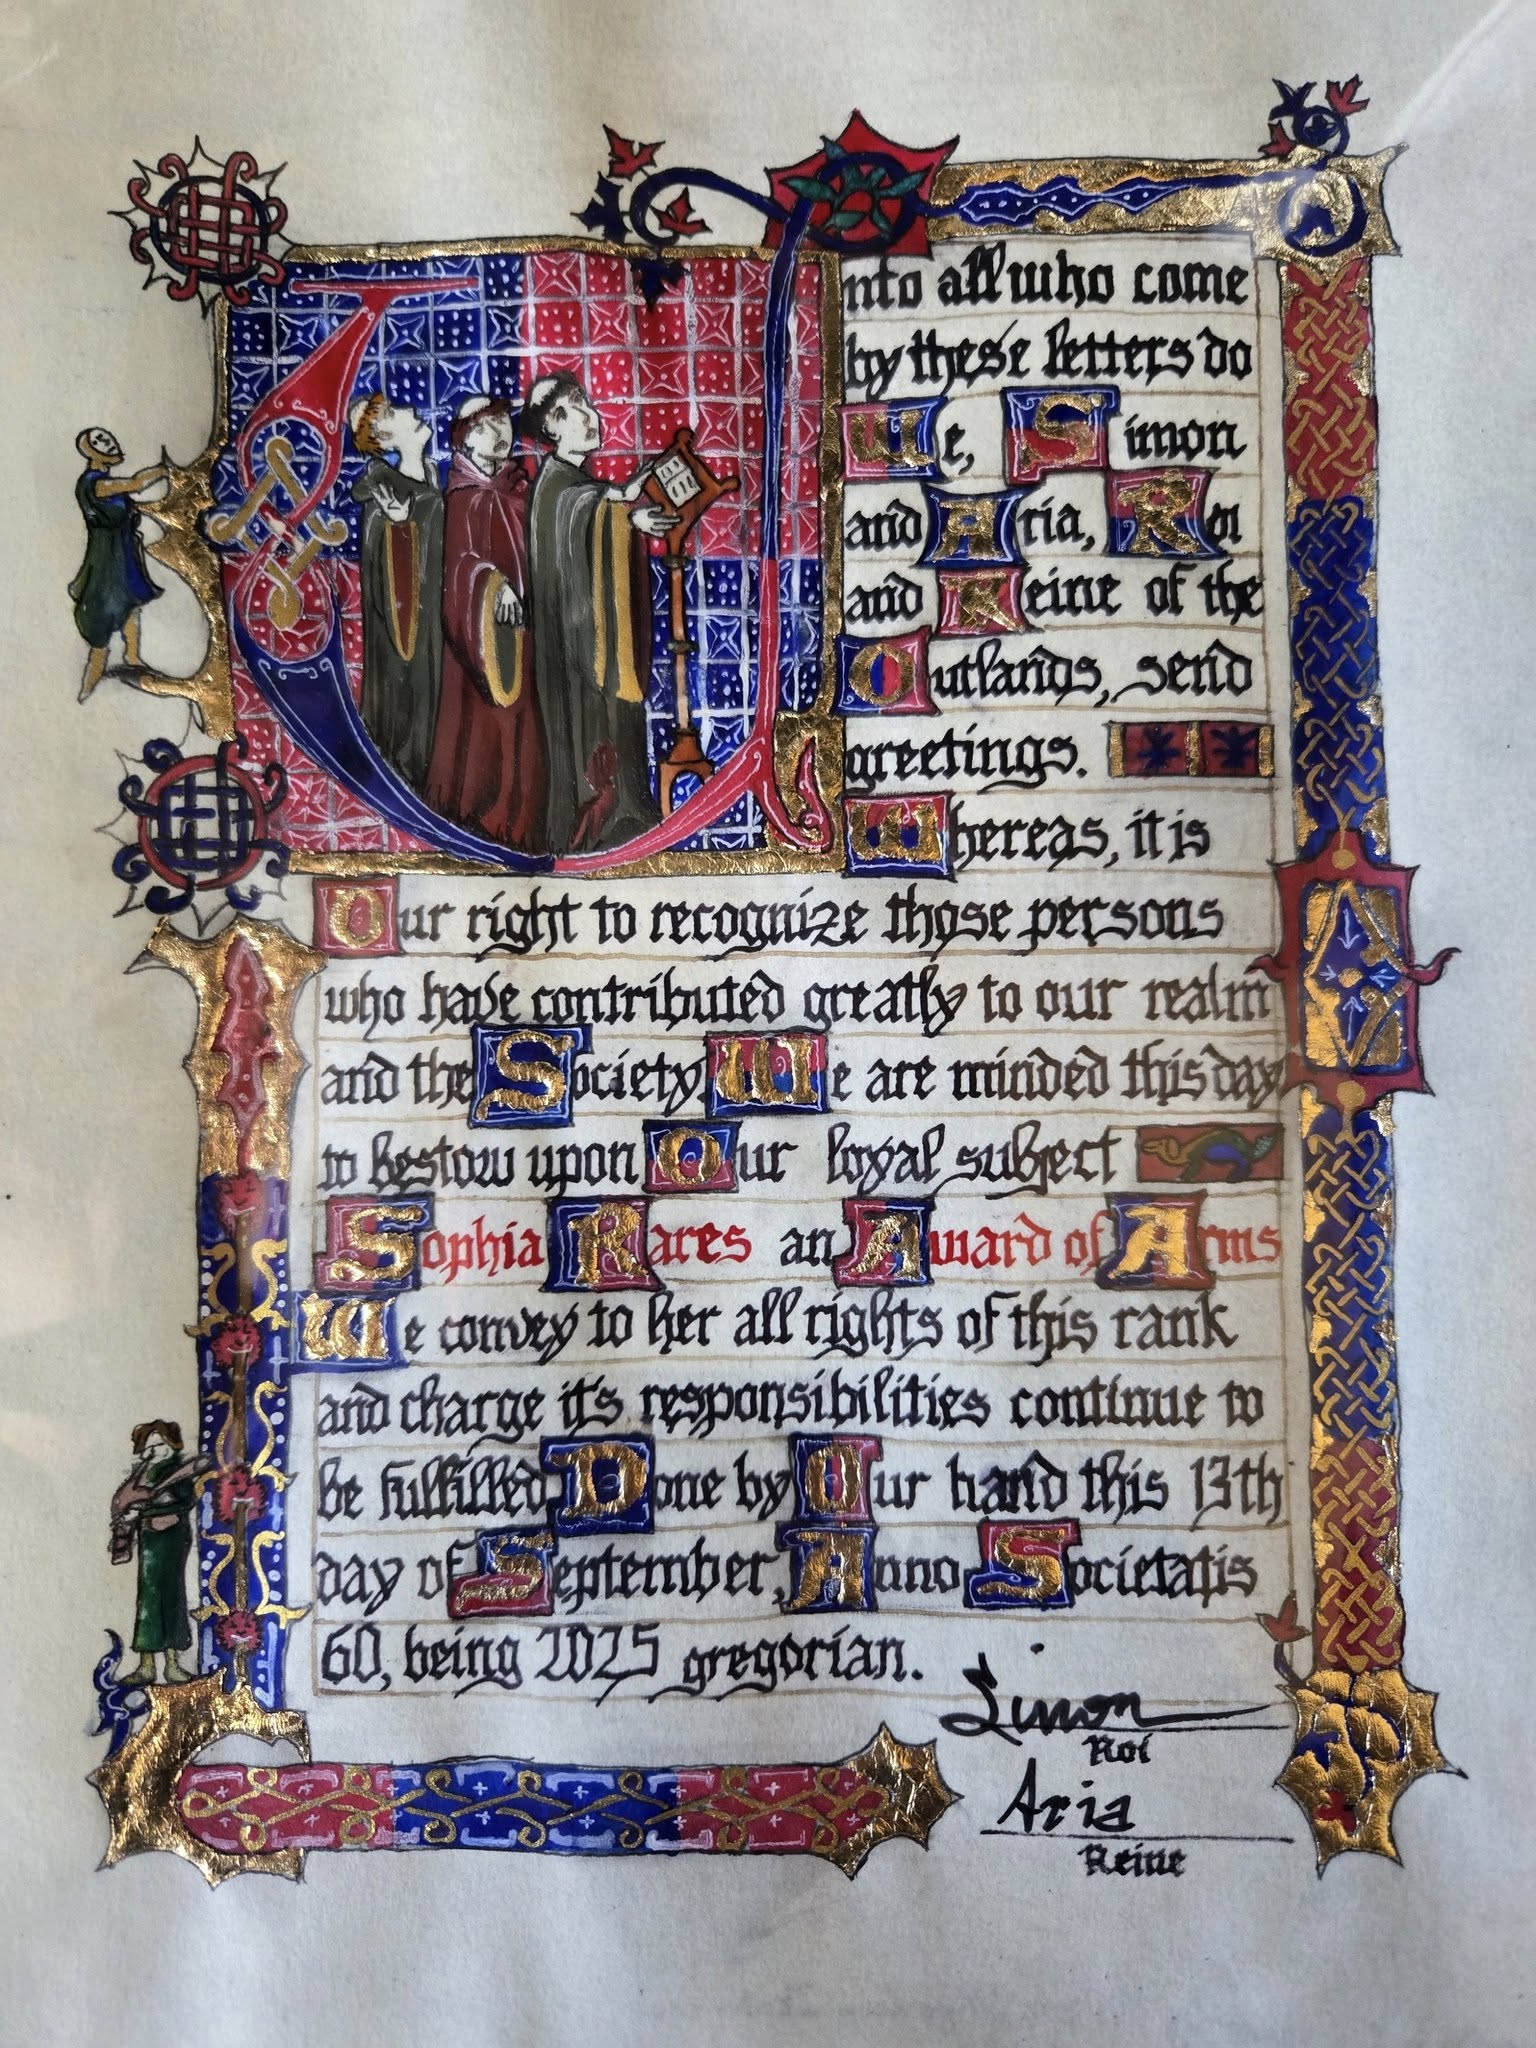 Unto all who come
by these letters do
We, Simon
and Aria, Roi
and Reine of the
Outlands, send
greetings.
Whereas, it is
Our right to recognize those persons
who have contributed greatly to our realm
and the Society. We are minded this day
to bestow upon Our loyal subject
Sophia Rares an Award of Arms
We convey to her all rights of this rank
and charge it's responsibilities continue to
be fulfilled Done by Our hand this 13th
day of September, Anno Societatis
60, being 2025 gregorian.
Simon
Roi
Aria
Reine